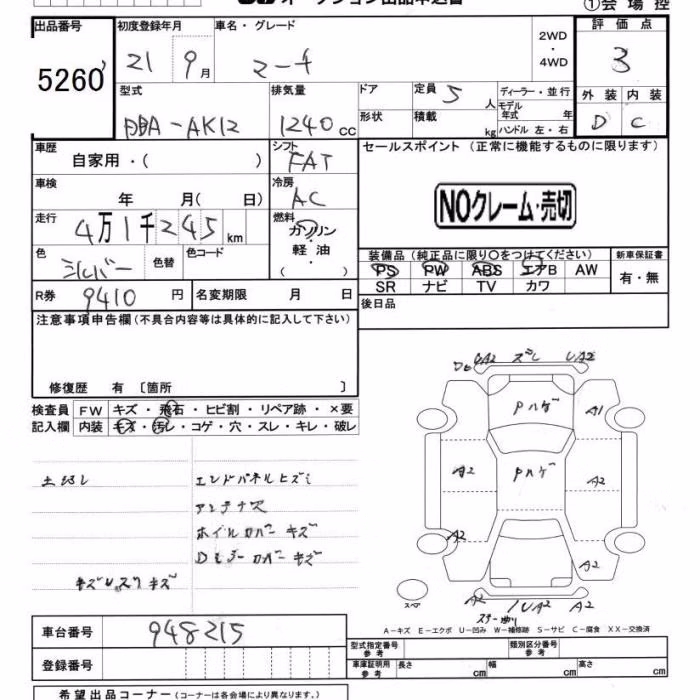 ①会場控
出品番号 初度登録年月 車名・グレード 2WD ・ 4WD 評価点
5260 21 9月 マーチ 3
型式 排気量 ドア 定員 5人 ディーラー・並行 外装 内装
DBA-AK12 1240cc 形状 積載 kg モデル年式 年 ハンドル 左・右 D C
車歴 自家用・( ) シフト FAT セールスポイント (正常に機能するものに限ります)
車検 年 月( 日) 冷房 AC
NOクレーム・売切
走行 4万1千245km 燃料 ガソリン・軽油・( )
色 シルバー 色替 色コード
装備品(純正品に限り○をつけてください) 新車保証書
PS PW ABS エアB AW 有・無
SR ナビ TV カワ
R券 9410円 名変期限 月 日 後日品
注意事項申告欄(不具合内容等は具体的に記入して下さい)
修復歴 有 [箇所 ]
検査員 FW キズ・飛石・ヒビ割・リペア跡・×要
記入欄 内装 キズ・汚レ・コゲ・穴・スレ・キレ・破レ
エンドパネルヒズミ
アンテナ欠
ホイルカバーキズ
Dミラーカバーキズ
UA2 ズレ UA2
Pハゲ
A1
A2 Pハゲ A2
A2
A2
A2 UA2 A2
スペア
A-キズ E-エクボ U-凹み W-補修跡 S-サビ C-腐食 XX-交換済
車台番号 948215
型式指定番号 参考 類別区分番号 参考
登録番号 車庫証明用 参考 長さ cm 幅 cm 高さ cm
希望出品コーナー(コーナーは各会場により異なります。)